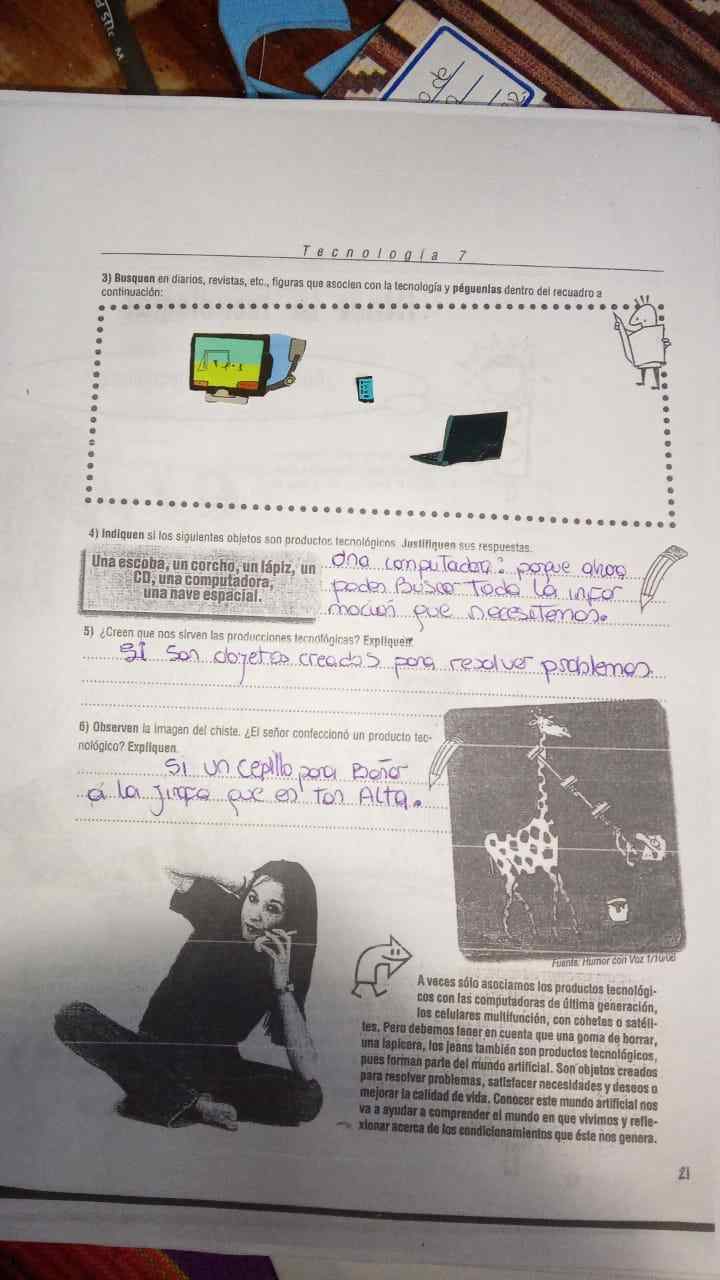 Tecnología 7
3) Busquen en diarios, revistas, etc., figuras que asocien con la tecnología y péguenlas dentro del recuadro a
continuación:
4) Indiquen si los siguientes objetos son productos tecnológicos. Justifiquen sus respuestas.
Una escoba, un corcho, un lápiz, un
CD, una computadora,
una nave espacial.
Una computadora: porque ahora
podes Buscar Toda la infor
mación que necesitemos.
5) ¿Creen que nos sirven las producciones tecnológicas? Expliquen.
SI son objetos creados para resolver problemas
6) Observen la imagen del chiste. ¿El señor confeccionó un producto tec-
nológico? Expliquen.
SI un cepillo para Bañar
a la jirafa que es tan Alta.
Fuente: Humor con Voz 1/10/06
A veces sólo asociamos los productos tecnológi-
cos con las computadoras de última generación,
los celulares multifunción, con cohetes o satéli-
tes. Pero debemos tener en cuenta que una goma de borrar,
una lapicera, los jeans también son productos tecnológicos,
pues forman parte del mundo artificial. Son objetos creados
para resolver problemas, satisfacer necesidades y deseos o
mejorar la calidad de vida. Conocer este mundo artificial nos
va a ayudar a comprender el mundo en que vivimos y refle-
xionar acerca de los condicionamientos que éste nos genera.
21